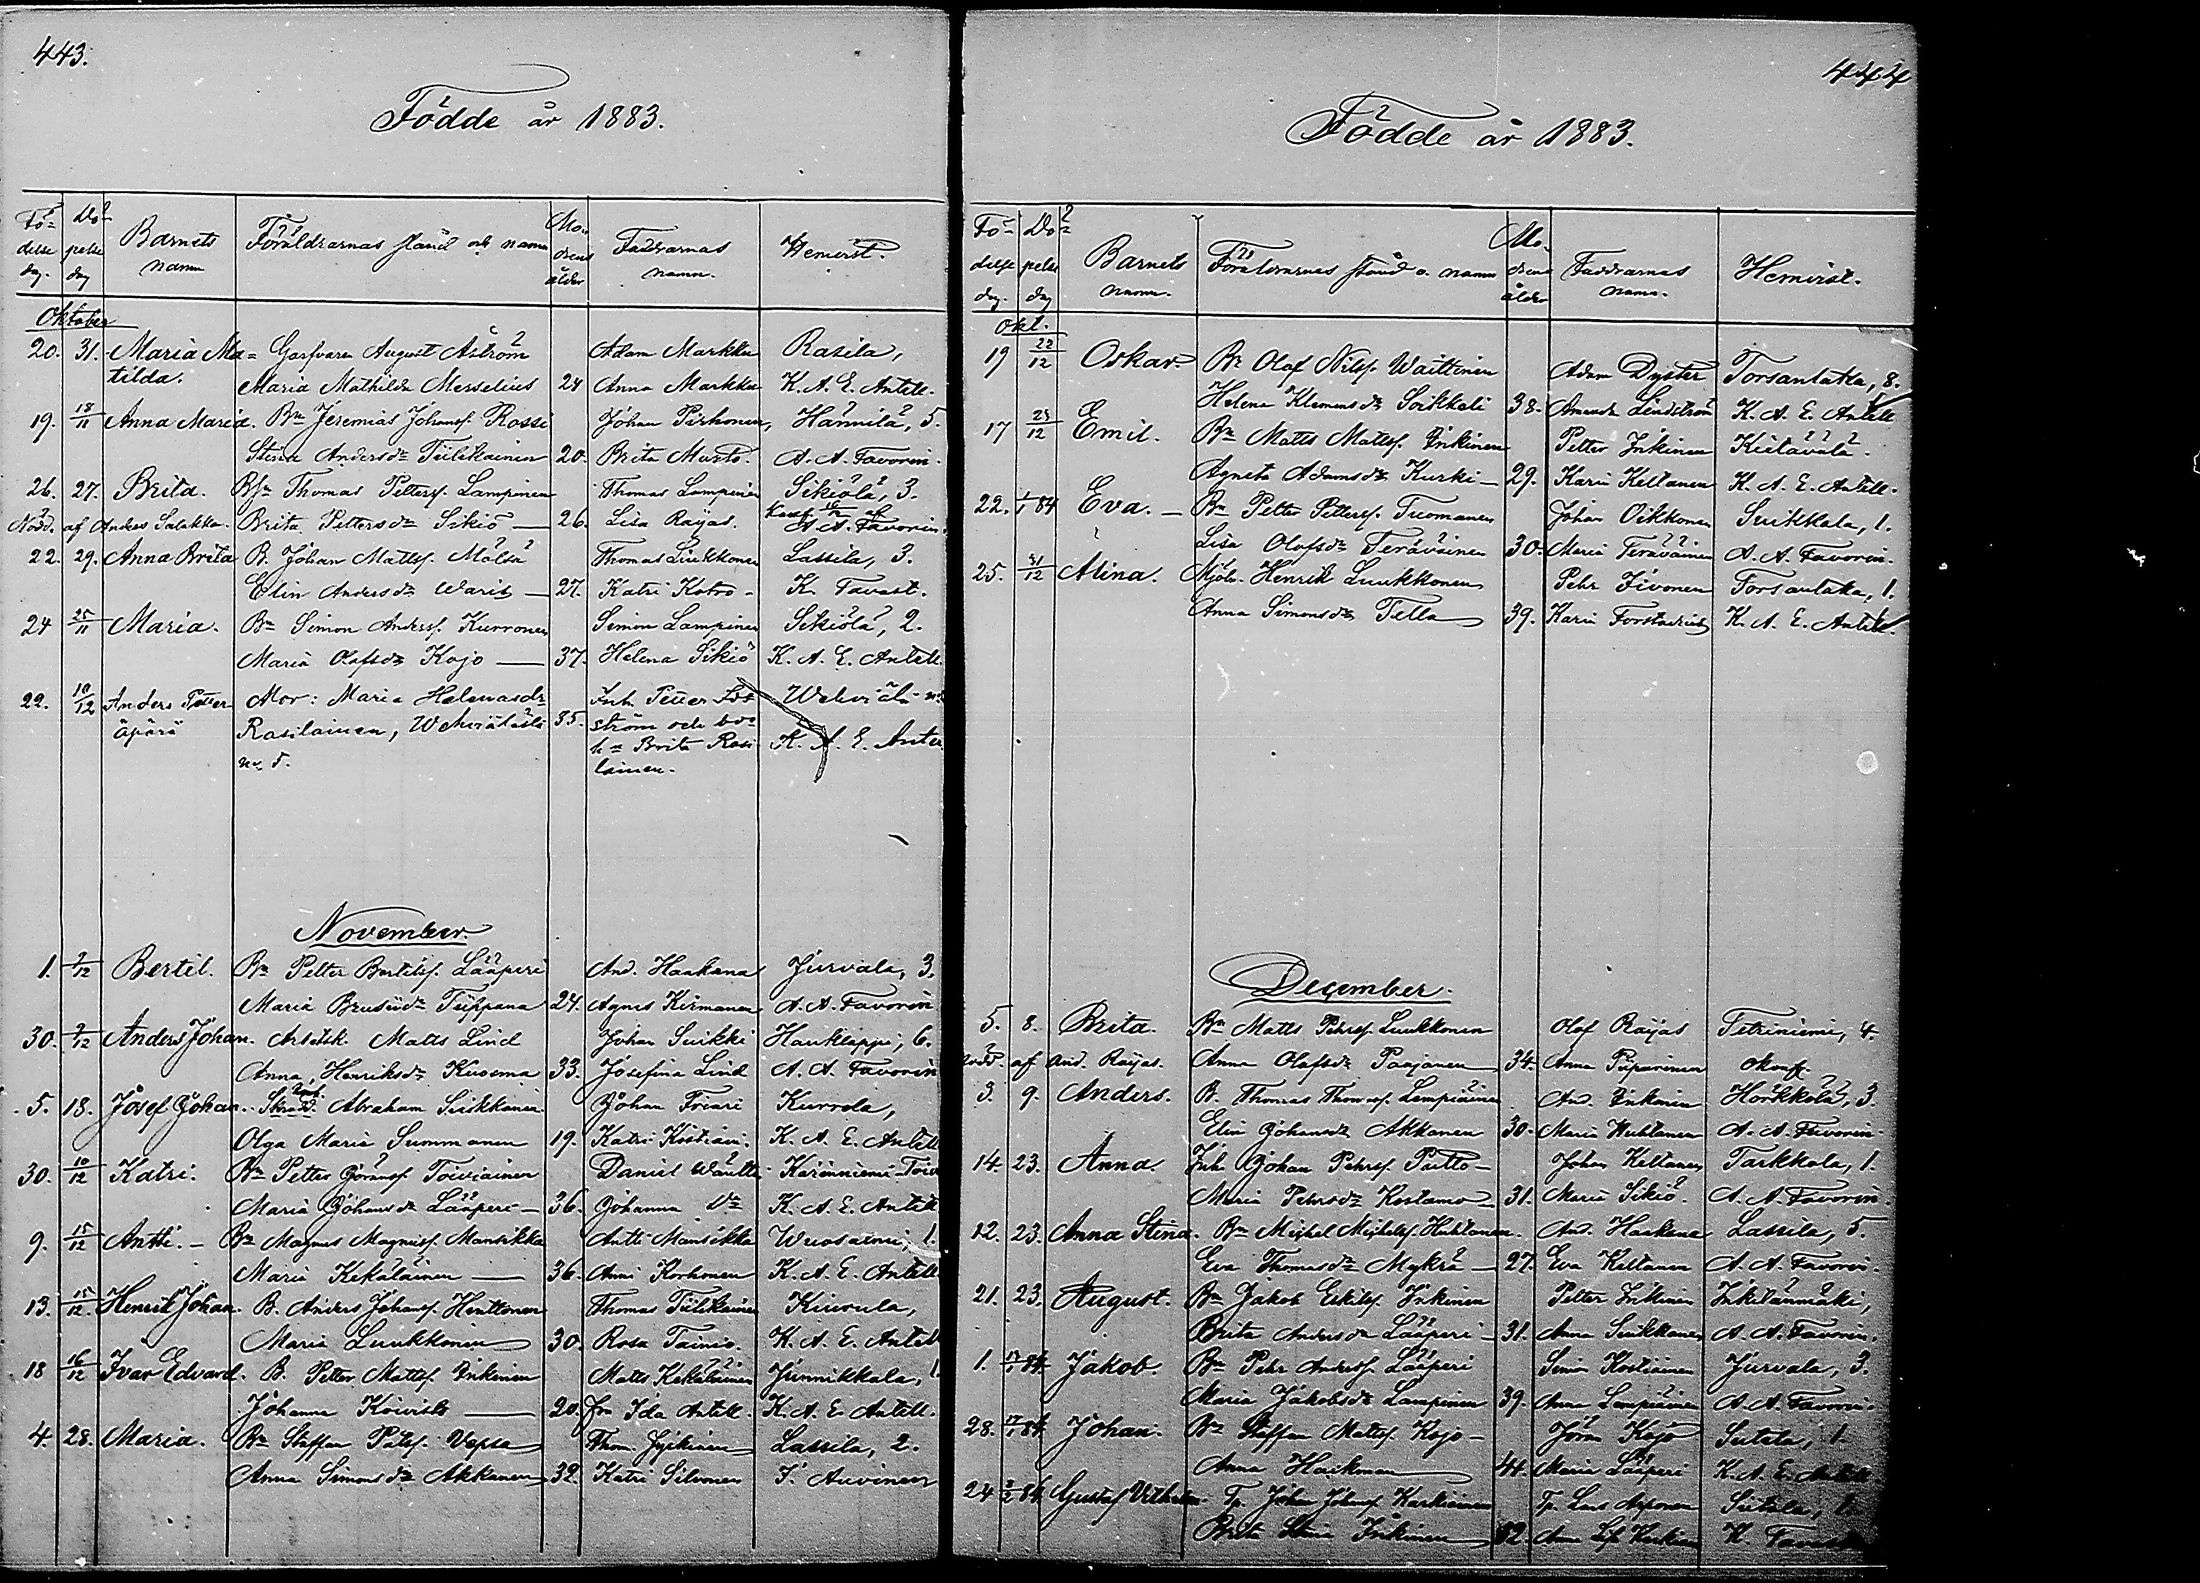 443.
Födde år 1883.
Födelse dag. Döpelse dag Barnets namn Föräldrarnas stånd och namn Modrens ålder Faddrarnas namn. Hemvist.
Oktober
20. 31. Maria Ma= Garfvaren August Åström Adam Markku Rasila,
tilda. Maria Mathilda Merselius 24 Anna Markku K. A. E. Antell.
19. 18/11 Anna Maria. Bn Jeremias Johansf. Rossi Johan Pirhonen, Hannila, 5.
Stina Andersdr Tiilikainen 20. Brita Musto. A. A. Favorin.
26. 27. Brita. Thomas Pettersf. Lampinen Thomas Lampinen Sikiölä, 3.
Nödd. af Anders Salakka. Brita Pettersdr Sikiö — 26. Lisa Rayas. A. A. Favorin.
22. 29. Anna Brita B. Johan Mattsf. Mölsä Thomas Luukkonen Lassila, 3.
Elin Andersdr Waris — 27. Katri Kotro - K. Favast.
24 25/11 Maria. Bn Simon Andersf. Kurronen Simon Lampinen Sikiölä, 2.
Maria Olofsdr Kojo — 37. Helena Sikiö K. A. E. Antell.
22. 10/12 Anders Petter Mor: Maria Helenasdr Inh. Petter
äpärä Rasilainen, 35. ström och
no 5. Brita Rasi K. A. E. Ante
lainen.
November.
1. 7/12 Bertil. Bn Petter Bertilsf. Lääperi And. Haakana Jurvala, 3.
Maria Tiippana 24. Agnes Kirmanen A. A. Favorin
30. 9/12 Anders Johan. Matts Lind Johan Suikki Haukleppi, 6.
Anna Henriksdr Kuosma 33. Josefina Lind A. A. Favorin
5. 18. Josef Johan. Abraham Suikkanen Johan Friari Kurrola,
Olga Maria Summanen 19. Katri K. A. E. Antell
30. 10/12 Katri. Bn Petter Göransf. Toiviainen Daniel
Maria Johansdr Lääperi — 36. Johanna Dr K. A. E. Antell
9. 15/12 Antti. — Bn Magnus Magnusf. Mansikka Antti Mansikka 1.
Maria Kekäläinen — 36. Anni Korhonen K. A. E. Antell.
13. 15/12. Henrik Johan. B. Anders Johansf. Henttonen Thomas Tiilikainen Kiurula,
Maria Luukkonen 30. Rosa Tainio. K. A. E. Antell
18 16/12 Ivar Edvard. B. Petter Mattsf. Inkinen Matts Kekäläinen Junnikkala, 1.
Johanna Koivisto — 20. fru Ida Antell. K. A. E. Antell.
4. 28. Maria. Bn Staffan Vepsä Lassila, 2.
Anna Simonsdr Akkanen 32. Katri Silvonen Auvinen
444
Födde år 1883.
Födelse dag. Döpelse dag Barnets namn. Föräldrarnas stånd o. namn Modrens ålder Faddrarnas namn. Hemvist.
Okt.
19 22/12 Oskar. Bn Olof Nilsf. Waittinen Adam Dyster Torsantaka, 8.
Helena Klemensdr Soikkeli 38. Amanda Lindström K. A. E. Antell
17 23/12 Emil. Bn Matts Mattsf. Inkinen Petter Inkinen Kiitävälä.
Agneta Adamsdr Kurki — 29. Karin Keltanen K. A. E. Antell.
22. 1/1 84 Eva. — Bn Petter Pettersf. Tuomanen Johan Oikkonen Suikkala, 1.
Lisa Olofsdr Teräväinen 30. Maria Teräväinen A. A. Favorin.
25. 31/12 Alina. Mjöln. Henrik Luukkonen Pehr Torsantaka, 1.
Anna Simonsdr Tella 39. Karin Forstadius K. A. E. Antell.
December.
5. 8. Brita. Bn Matts Pehrsf. Luukkonen Olof Rayas Tetriniemi, 4.
Nödd. af And. Rayas. Anna Olofsdr Paajanen 34. Anna Piiparinen
3. 9. Anders. B. Thomas Thomasf. Lempiäinen And. Inkinen Hörkkölä, 3.
Elin Johansdr Akkanen 30. Maria Huhtanen A. A. Favorin.
14. 23. Anna. Inh. Johan Pehrsf. Putto — Johan Keltanen Tarkkola, 1.
Maria Pehrsdr Kostamo 31. Maria Sikiö. A. A. Favorin.
12. 23. Anna Stina. Bn Michel Michelsf. Huhtanen. And. Haakana Lassila, 5.
Eva Thomasdr Mykrä — 27. Eva Keltanen A. A. Favorin.
21. 23. August. Bn Jakob Eskilsf. Inkinen Petter Inkinen Inkilänmäki,
Brita Andersdr Lääperi — 31. Anna Suikkanen A. A. Favorin.
1. 17/1 84. Jakob. Bn Pehr Andersf. Lääperi Simon Kostiainen Jurvala, 3.
Maria Jakobsdr Lampinen 39. Anna Lempiäinen A. A. Favorin.
28. 17/1 84. Johan. Bn Staffan Mattsf. Kojo — Jöran Kojo Sutela, 1.
Anna Haikonen 44. Maria Lääperi K. A. E. Antell
24 2/2 84. Gustaf Vilhelm. Tp. Johan Johansf. Karkiainen Tp. Lars
Brita Stina Inkinen 32. K.